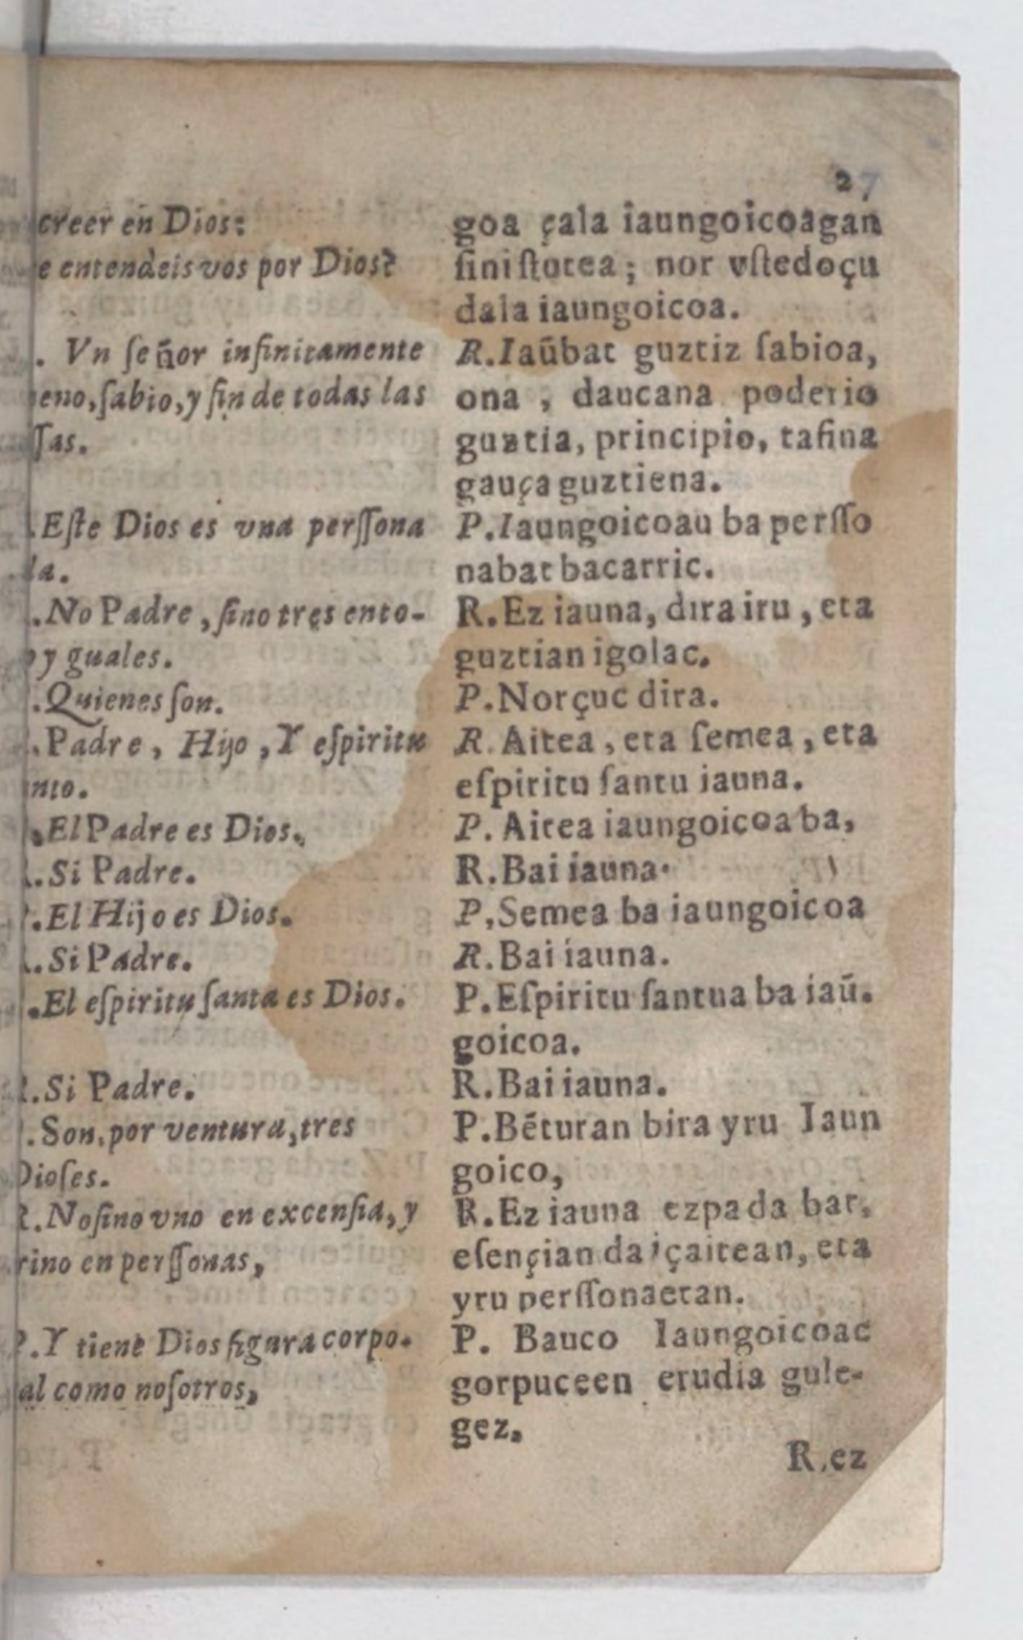 27
creer en Dios:
e entendeis vos por Dios?
. Vn señor infinitamente
eno, sabio, y fin de todas las
ssas.
.Este Dios es vna perssona
la.
.No Padre, sino tres ento-
y guales.
.Quienes son.
.Padre, Hijo, Y espiritu
nto.
.El Padre es Dios.
.Si Padre.
.El Hijo es Dios.
.Si Padre.
.El espiritu santa es Dios.
.Si Padre.
.Son, por ventura, tres
Dioses.
R.No sino vno en excensia, y
rino en perssonas,
P.Y tiene Dios figura corpo.
al como nosotros,
goa çala iaungoicoagan
sinistutea; nor vstedoçu
dala iaungoicoa.
R.Iaūbat guztiz sabioa,
ona, daucana poderio
guztia, principio, ta fina
gauça guztiena.
P.Iaungoicoau ba persso
nabat bacarric.
R.Ez iauna, dira iru, eta
guztian igolac.
P.Norçuc dira.
R. Aitea, eta semea, eta
espiritu santu iauna.
P. Aitea iaungoicoa ba,
R.Bai iauna.
P,Semea ba iaungoicoa
R.Bai iauna.
P.Espiritu santua ba iaū.
goicoa.
R.Bai iauna.
P.Bēturan bira yru Iaun
goico,
R.Ez iauna ezpada bat,
esençian da içaitean, eta
yru perssonaetan.
P. Bauco Iaungoicoac
gorpuceen erudia gule-
gez.
R.ez